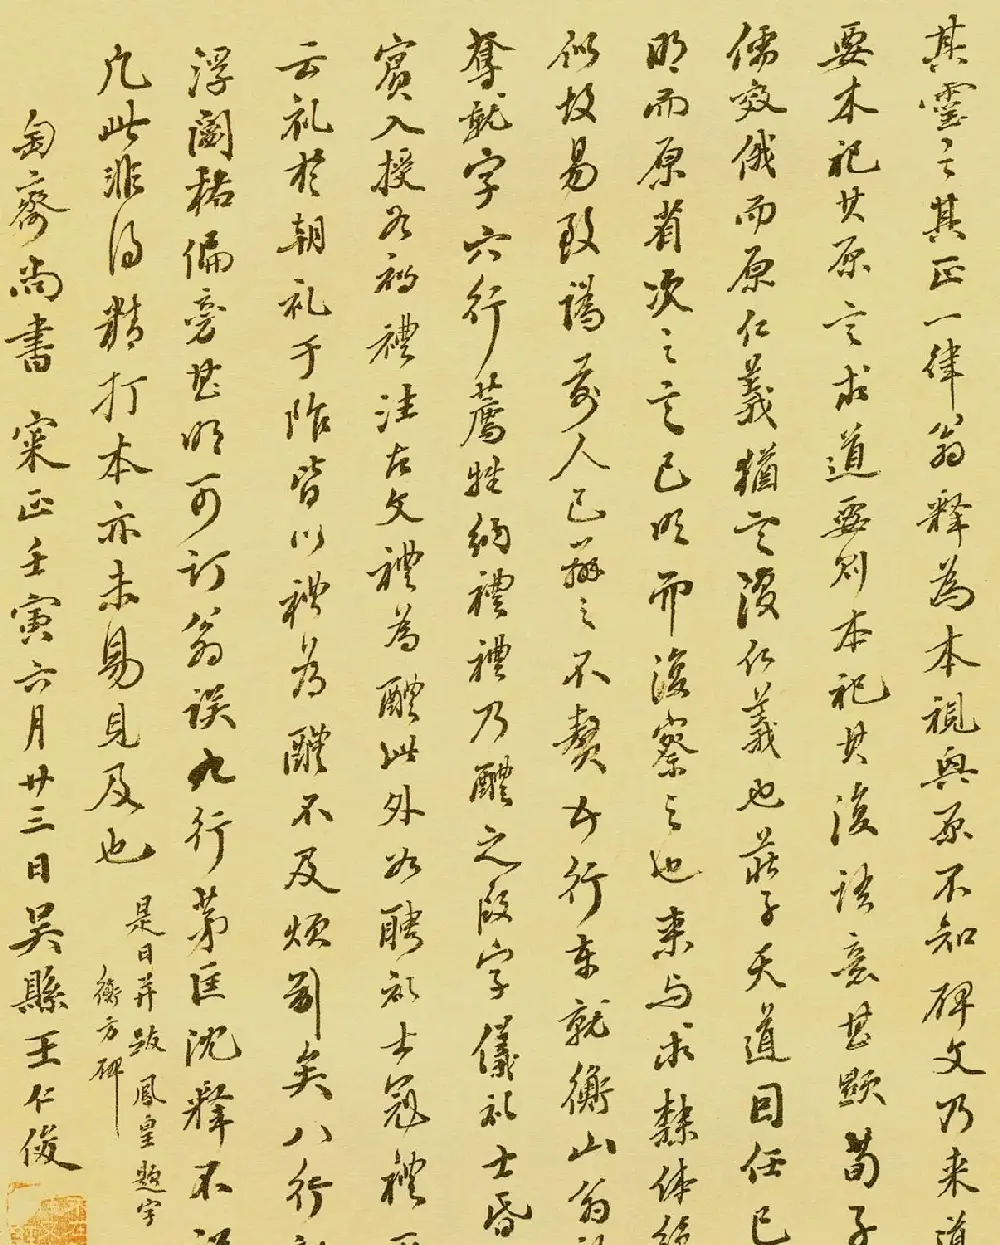 其靈之其正一律翁釋為本視與原不知碑文乃来道
要本祀其原言求道要則本祀其後語意甚顯荀子
儒效俄而原仁義猶言復仁義也莊子天道因任已
明而原省次之言已明而復察之也来与求隸体
似故易致譌前人已辨之不贅五行車就衡山翁
奪就字六行薦牲納禮禮乃醴之叚字儀礼士昏
賓入授如初禮注古文禮為醴此外如聘礼士冠禮
云礼於朝礼于阼皆以禮為醴不及煩剟矣八行
浮圖祏偏旁甚明可訂翁误九行茅匡沈釋不
凡此非得精打本亦未易見及也
是日并跋鳳皇題字
衡方碑
匋齋尚書 寀正壬寅六月廿三日吳縣王仁俊